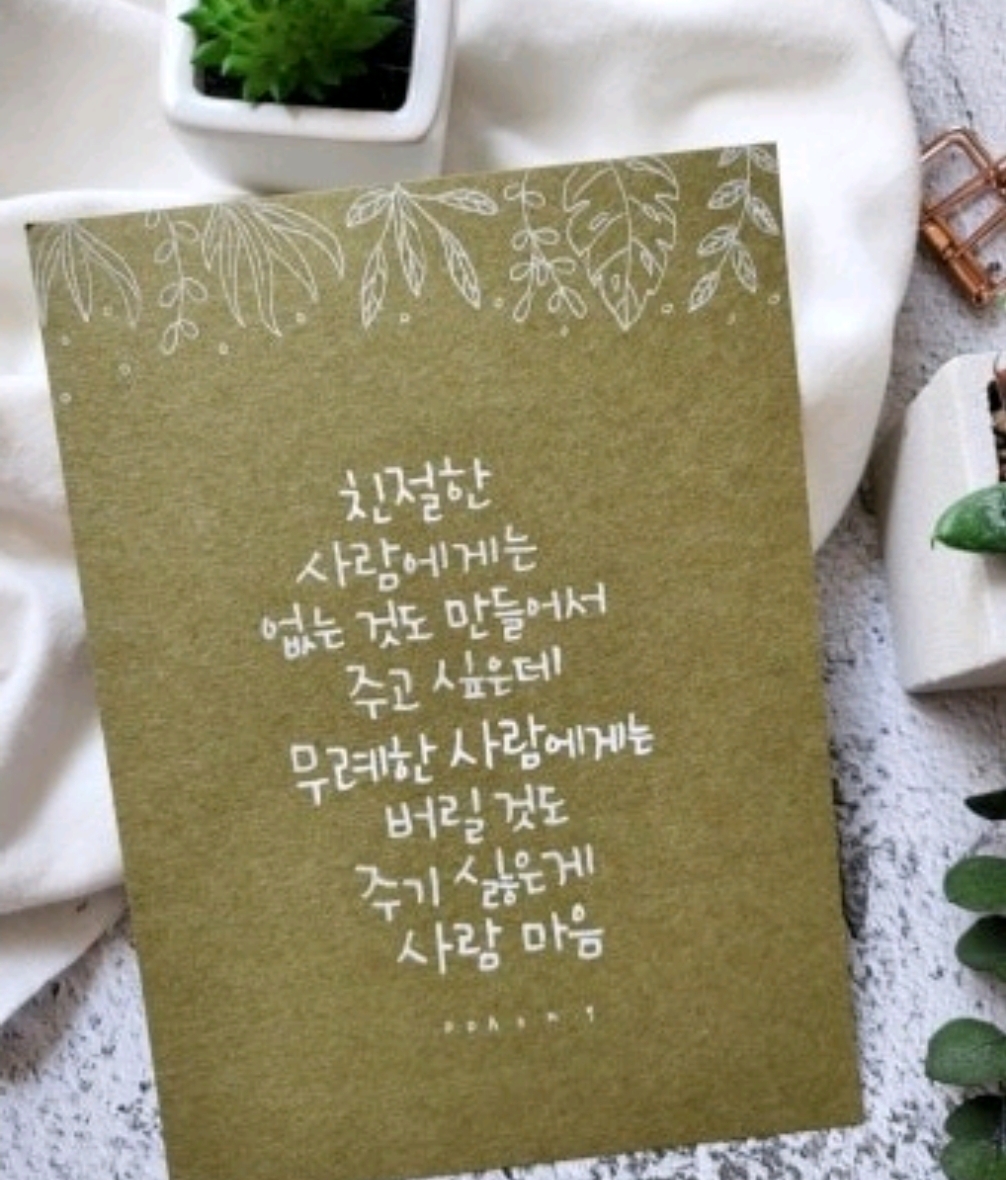 친절한
사람에게는
없는 것도 만들어서
주고 싶은데
무례한 사람에게는
버릴 것도
주기 싫은게
사람 마음